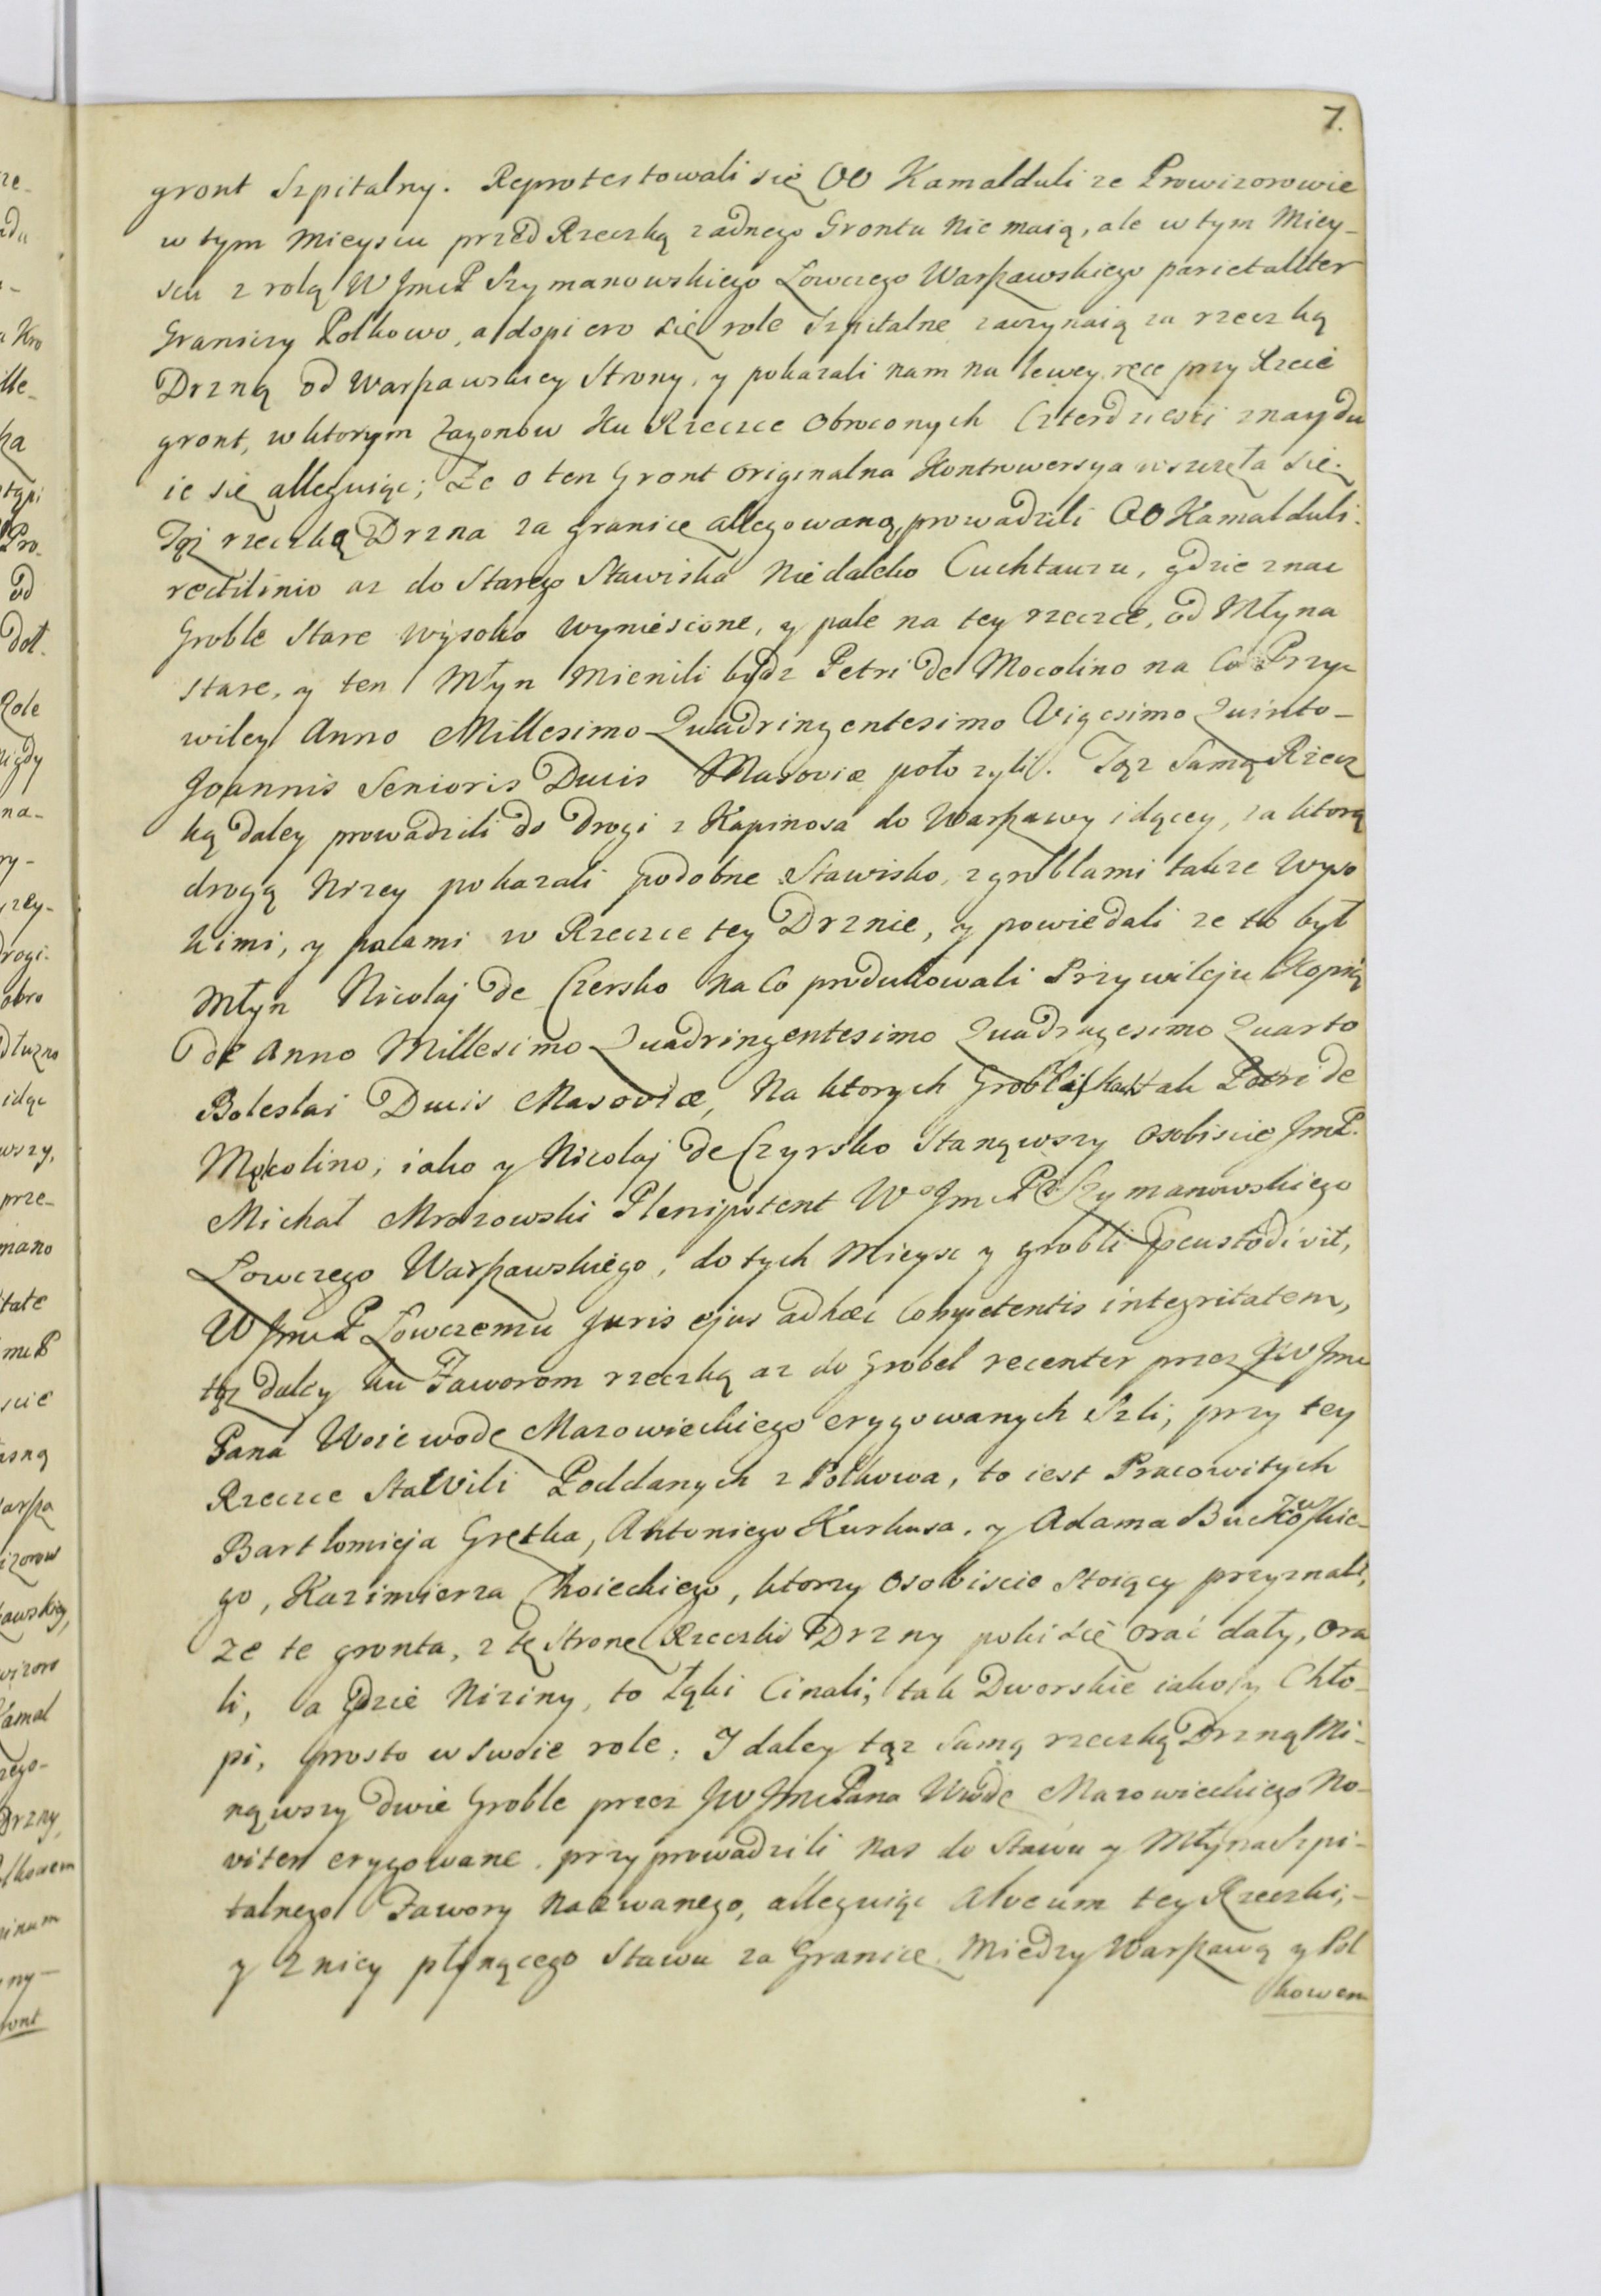 7.
gront Szpitalny. Reprotestowali się OO Kamalduli ze Prowizorowie
w tym Mieyscu przed Rzeczką zadnego Grontu Nie maią, ale w tym Miey-
scu z rolą W JmcP Szymanowskiego Łowczego Warszawskiego parietaliter
Graniczy Polkowo, a dopiero się role Szpitalne zaczynaią za rzeczką
Drzną od Warszawskiey Strony, y pokazali nam na lewey ręce przy
gront, w ktorym Zagonow Ku Rzeczce Obroconych Czterdziesci znaydu
ie się alleguiąc; Ze o ten Gront originalna Kontrowersya wszczęła się.
Tąż rzeczką Drzna za granicę allegowaną prowadzili OO Kamalduli.
rectilinio az do Starego Stawiska Niedaleko Cuchtauzu, gdzie znac
Groble Stare Wysoko Wyniesione, y pale na tey rzeczce, od Młyna
stare, y ten Młyn Mienili bydz Petri de Mocolino na Co Przy-
wiley Anno Millesimo Quadringentesimo Vigesimo Quinto-
Joannis Senioris Ducis Masoviæ położyli. Tąz Samą Rzecz
ką daley prowadzili do Drogi z Kapinosa do Warszawy idącey, za ktorą
drogą Nizey pokazali podobne Stawisko, z groblami takze Wyso
kimi, y palami w Rzeczce tey Drznie, y powiedali ze to był
Młyn Nicolaj de Czersko Na Co produkowali Przywileju Kopią
de Anno Millesimo Quadringentesimo Quadragesimo Quarto
Boleslai Ducis Masoviæ, Na ktorych tak Petri de
Mąkolino, iako y Nicolaj de Czyrsko Stanąwszy Osobiscie JmP.
Michał Mrozowski Plenipotent Wo JmcPa Szymanowskiego
Łowczego Warszawskiego, do tych Mieysc y grobli
W JmcP Łowczemu Juris ejus adhæc Competentis integritatem,
tąz daley ku Zaworom rzeczką az do Grobel recenter przez JW Jmc
Pana Woiewodę Mazowieckiego erygowanych Szli, przy tey
Rzeczce Stawili Poddanych z Polkowa, to iest Pracowitych
Bartlomieja Gretka, Antoniego Kurkusa, y Adama
go, Kazimierza Choieckiego, ktorzy Osobiscie Stoiący przyznali,
ze te gronta, z tę Stronę Rzeczki Drzny poki się orać dały, Ora
li, a gdzie Niziny, to Łąki Cinali, tak Dworskie iako y Chło-
pi, prosto w Swoie role; I daley tąz Samą rzeczką Drzną Mi-
nąwszy dwie Groble przez JW JmcPana Wwdę Mazowieckiego No-
viter erygowane, przyprowadzili nas do Stawu y Młyna Szpi-
talnego Zawory Nazwanego, alleguiąc Alveum tey Rzeczki,-
y Z nicy płynącego Stawu za Granicę Miedzy Warszawą y Pol
kowem